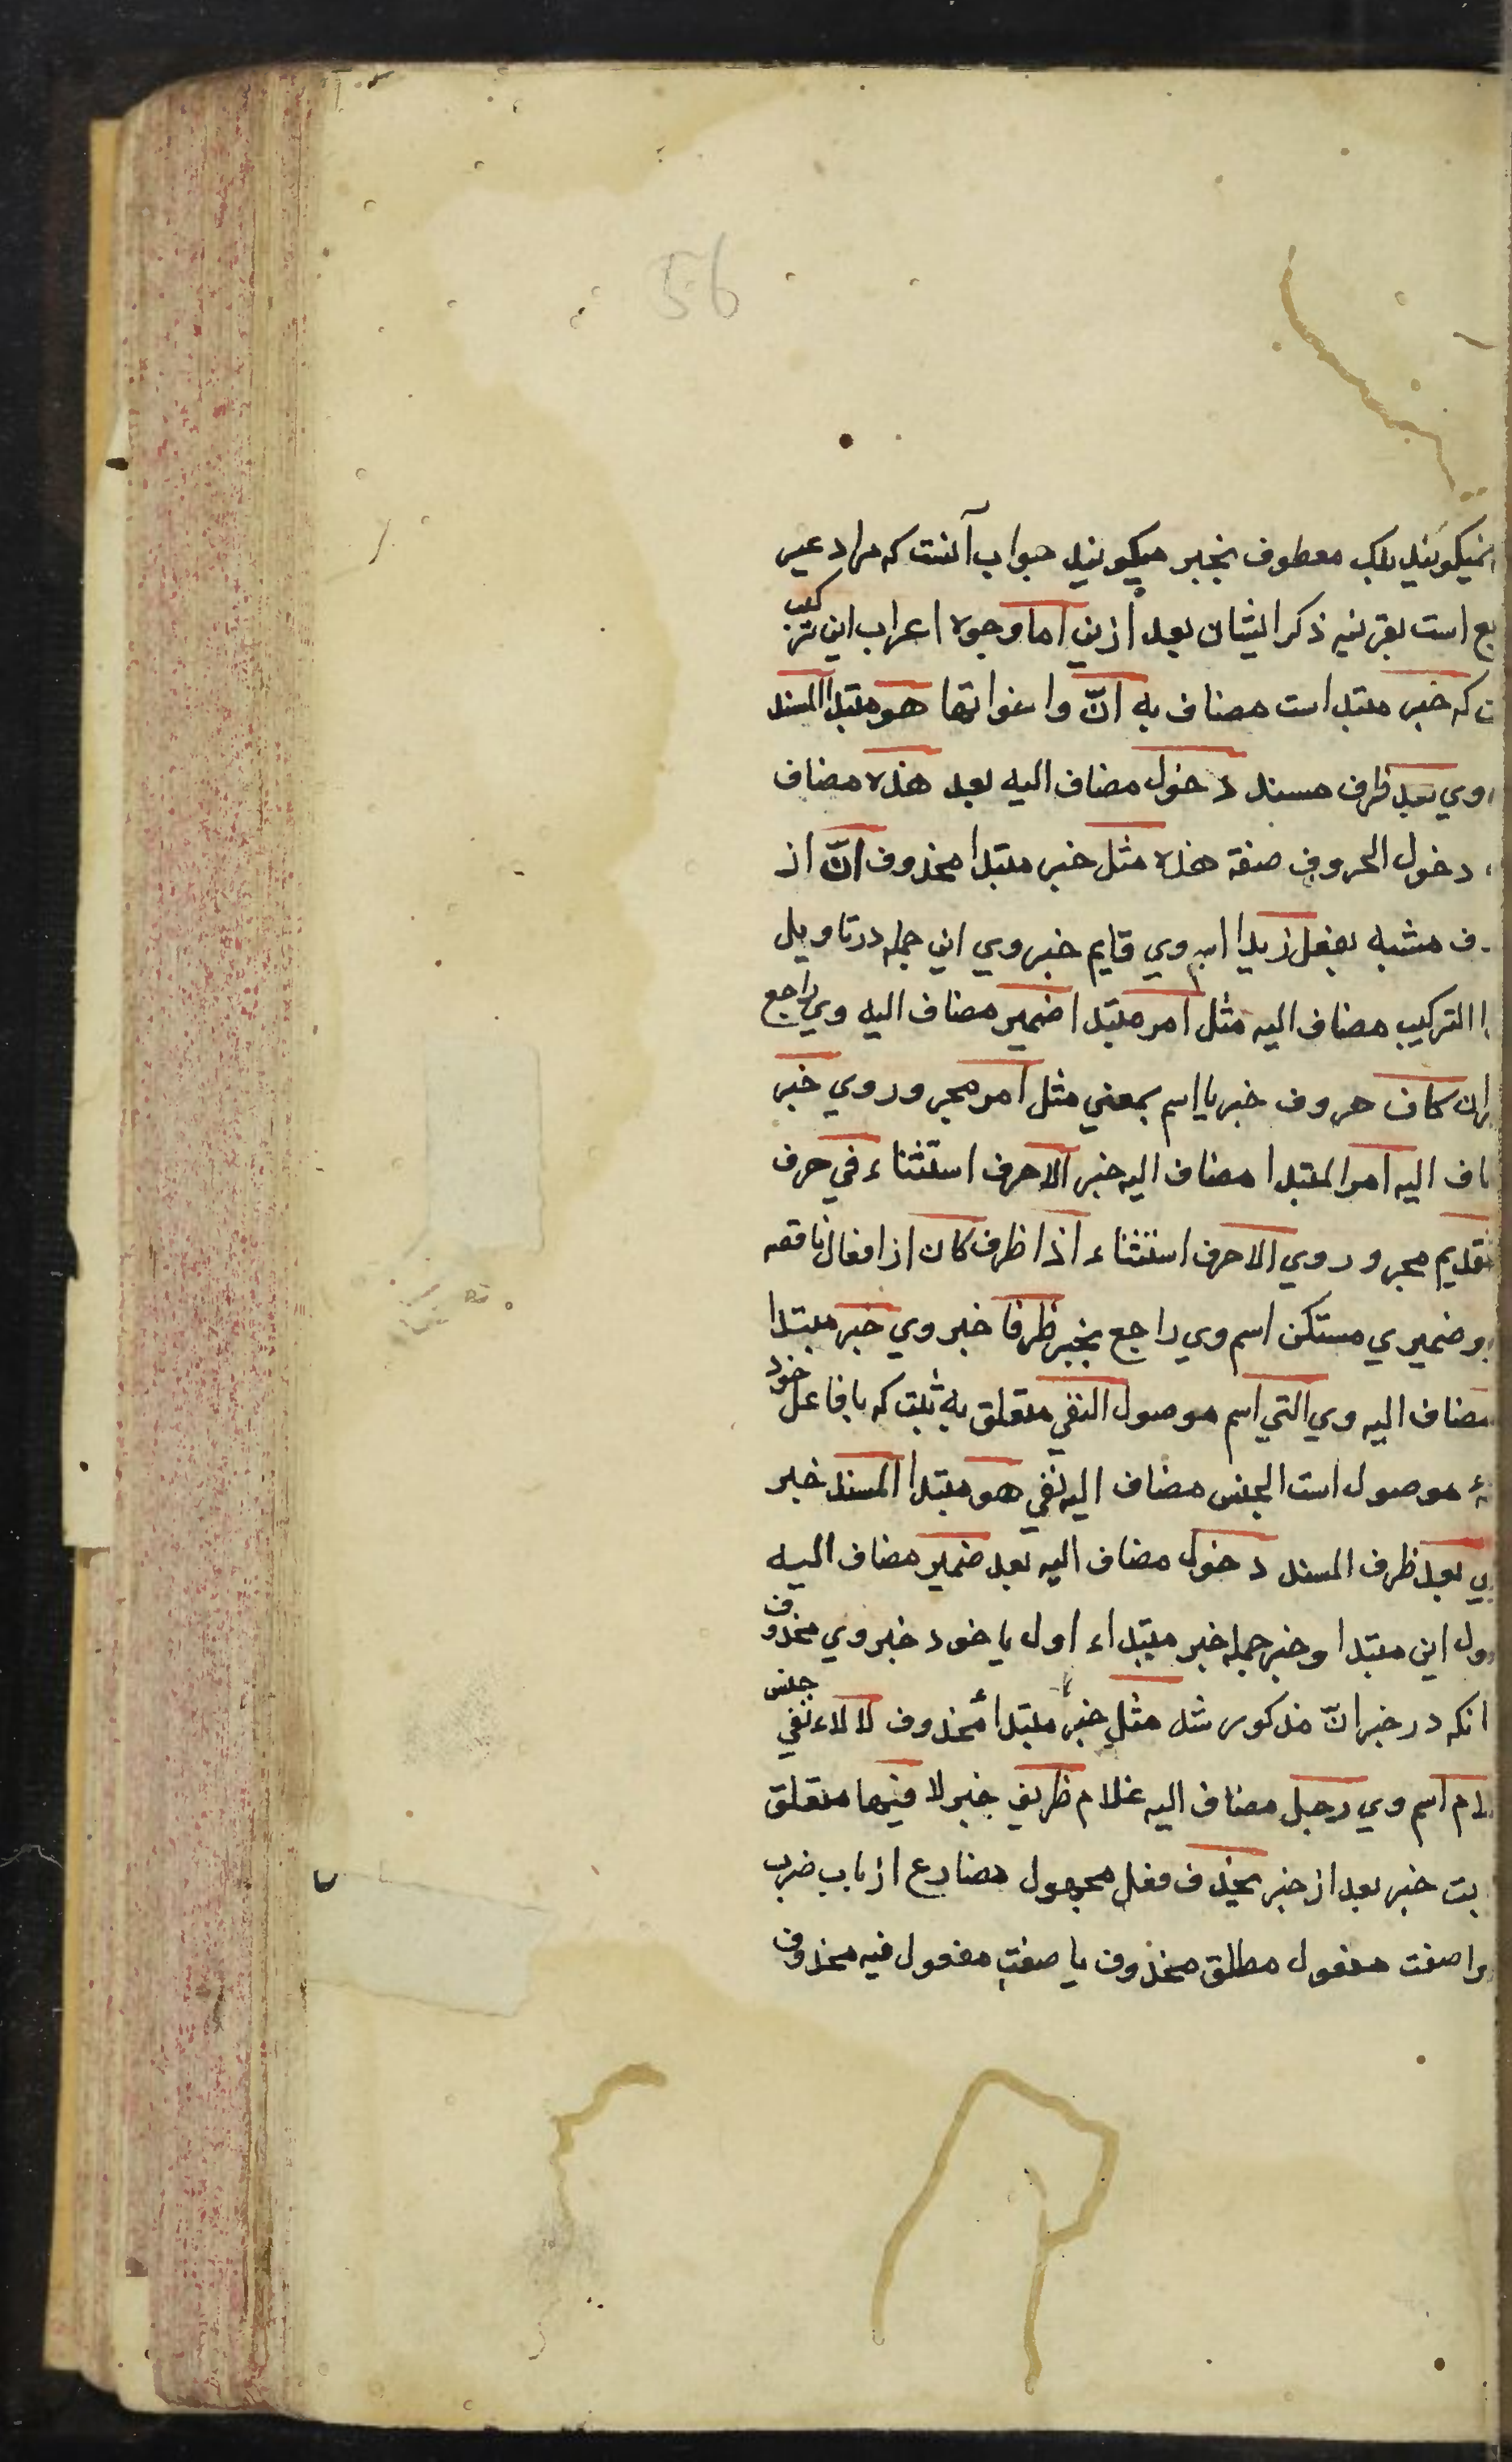 56
نميكويند بلك معطوف بخبر ميكويند جواب آنست كه مراد غير
بع است بقرينه ذكر ايشان بعد ازين اما وجوه اعراب اين تركيب
ت كه خبر مبتدا است مضاف به انّ واخواتها هو مبتدا المسند
وي بعد ظرف مسند دخول مضاف اليه بعد هذه مضاف
دخول الحروف صفة هذه مثل خبر مبتدا محذوف انّ از
ف مشبه بفعل زيدا اسم وي قايم خبر وي اين جمله درتاويل
ا التركيب مضاف اليه مثل امر مبتدا ضمير مضاف اليه وي راجع
ان كاف حروف خبر يا اسم بمعني مثل امر مجرور وي خبر
اف اليه امر المبتدا مضاف اليه خبر الا حرف استثناء في حرف
تقديم مجرور وي الا حرف استثناء اذا ظرف كان از افعال ناقصه
و ضميري مستكن اسم وي راجع بخبر ظرفا خبر وي خبر مبتدا
مضاف اليه وي التي اسم موصول النفي متعلق به ثبت كه با فاعل خود
ۀ موصول است الجنس مضاف اليه نفي هو مبتدا المسند خبر
ي بعد ظرف المسند دخول مضاف اليه بعد ضمير مضاف اليه
ول اين مبتدا وخبر جمله خبر مبتداء اول يا خود خبر وي محذوف
انكه در خبر انّ مذكور شد مثل خبر مبتداء محذوف لا لاء نفي جنس
لام اسم وي رجل مضاف اليه غلام ظريف خبر لا فيها متعلق
بت خبر بعد از خبر يحذف فعل مجهول مضارع از باب ضرب
را صفت مفعول مطلق محذوف يا صفت مفعول فيه محذوف